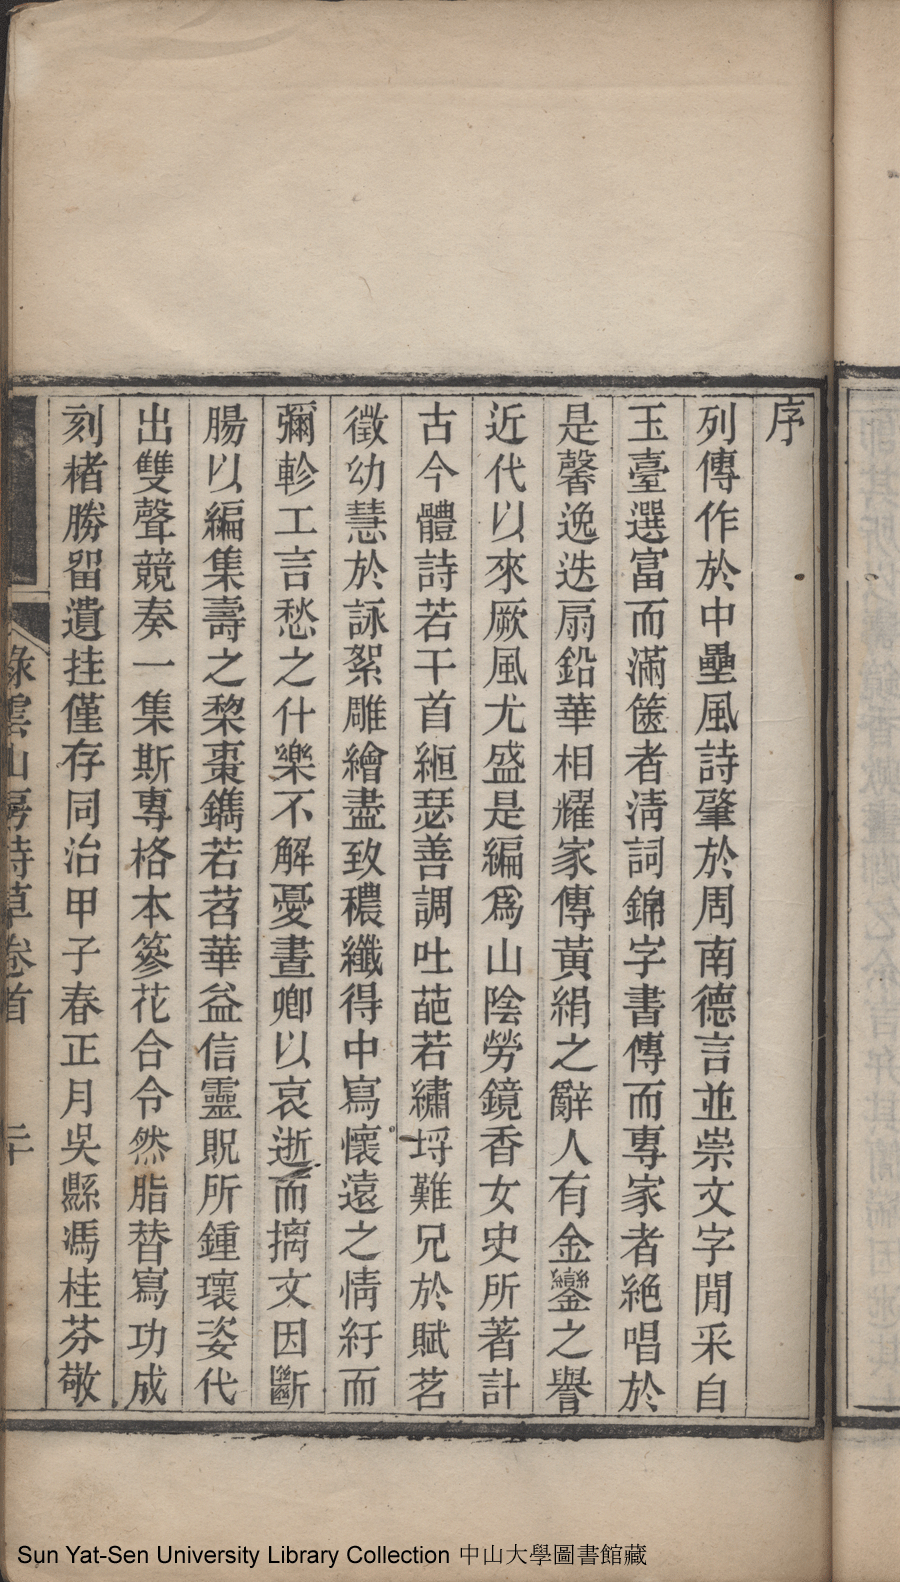 序
列傳作於中壘風詩肇於周南德言並崇文字閒采自
玉臺選富而滿篋者淸詞錦字書傳而專家者絶唱於
是馨逸迭扇鉛華相耀家傳黃絹之辭人有金鑾之譽
近代以來厥風尤盛是編爲山陰勞鏡香女史所著計
古今體詩若干首絙瑟善調吐葩若繡埒難兄於賦茗
徵幼慧於詠絮雕繪盡致穠纖得中寫懷遠之情紆而
彌軫工言愁之什樂不解憂晝卿以哀逝而摛文因斷
腸以編集壽之棃棗鐫若苕華益信靈貺所鍾瓌姿代
出雙聲競奏一集斯專格本篸花合令然脂替寫功成
刻楮勝留遺挂僅存同治甲子春正月吳縣馮桂芬敬
綠雲山房詩草卷首
Sun Yat-Sen University Library Collection 中山大學圖書館藏